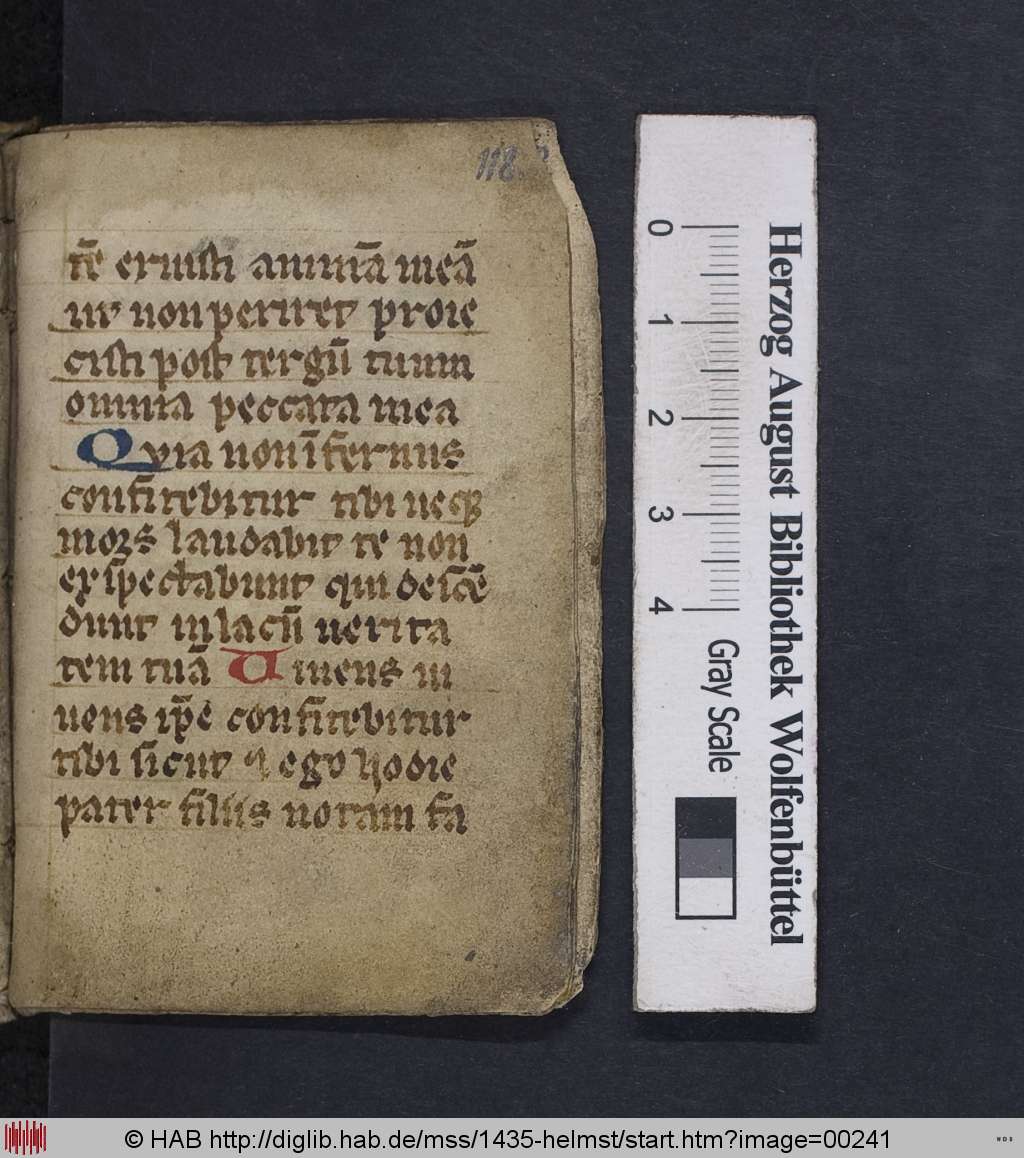 118
tē eruisti animā meā
ut non periret proie
cisti post tergū tuum
omnia peccata mea
Quia non īfernus
confitebitur tibi neqꝫ
mors laudabit te non
exspectabunt qui descē
dunt in lacū uerita
tem tuā Uiuens ui
uens ip̄e confitebitur
tibi sicut ⁊ ego hodie
pater filiis notam fa
Herzog August Bibliothek Wolfenbüttel
0 1 2 3 4
Gray Scale
© HAB http://diglib.hab.de/mss/1435-helmst/start.htm?image=00241